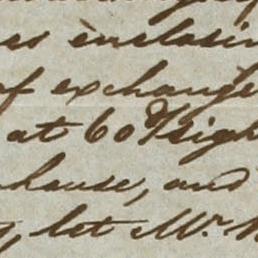 es enclosin
of exchange
at 60 d/sigh
nhause, and
, let Mr.